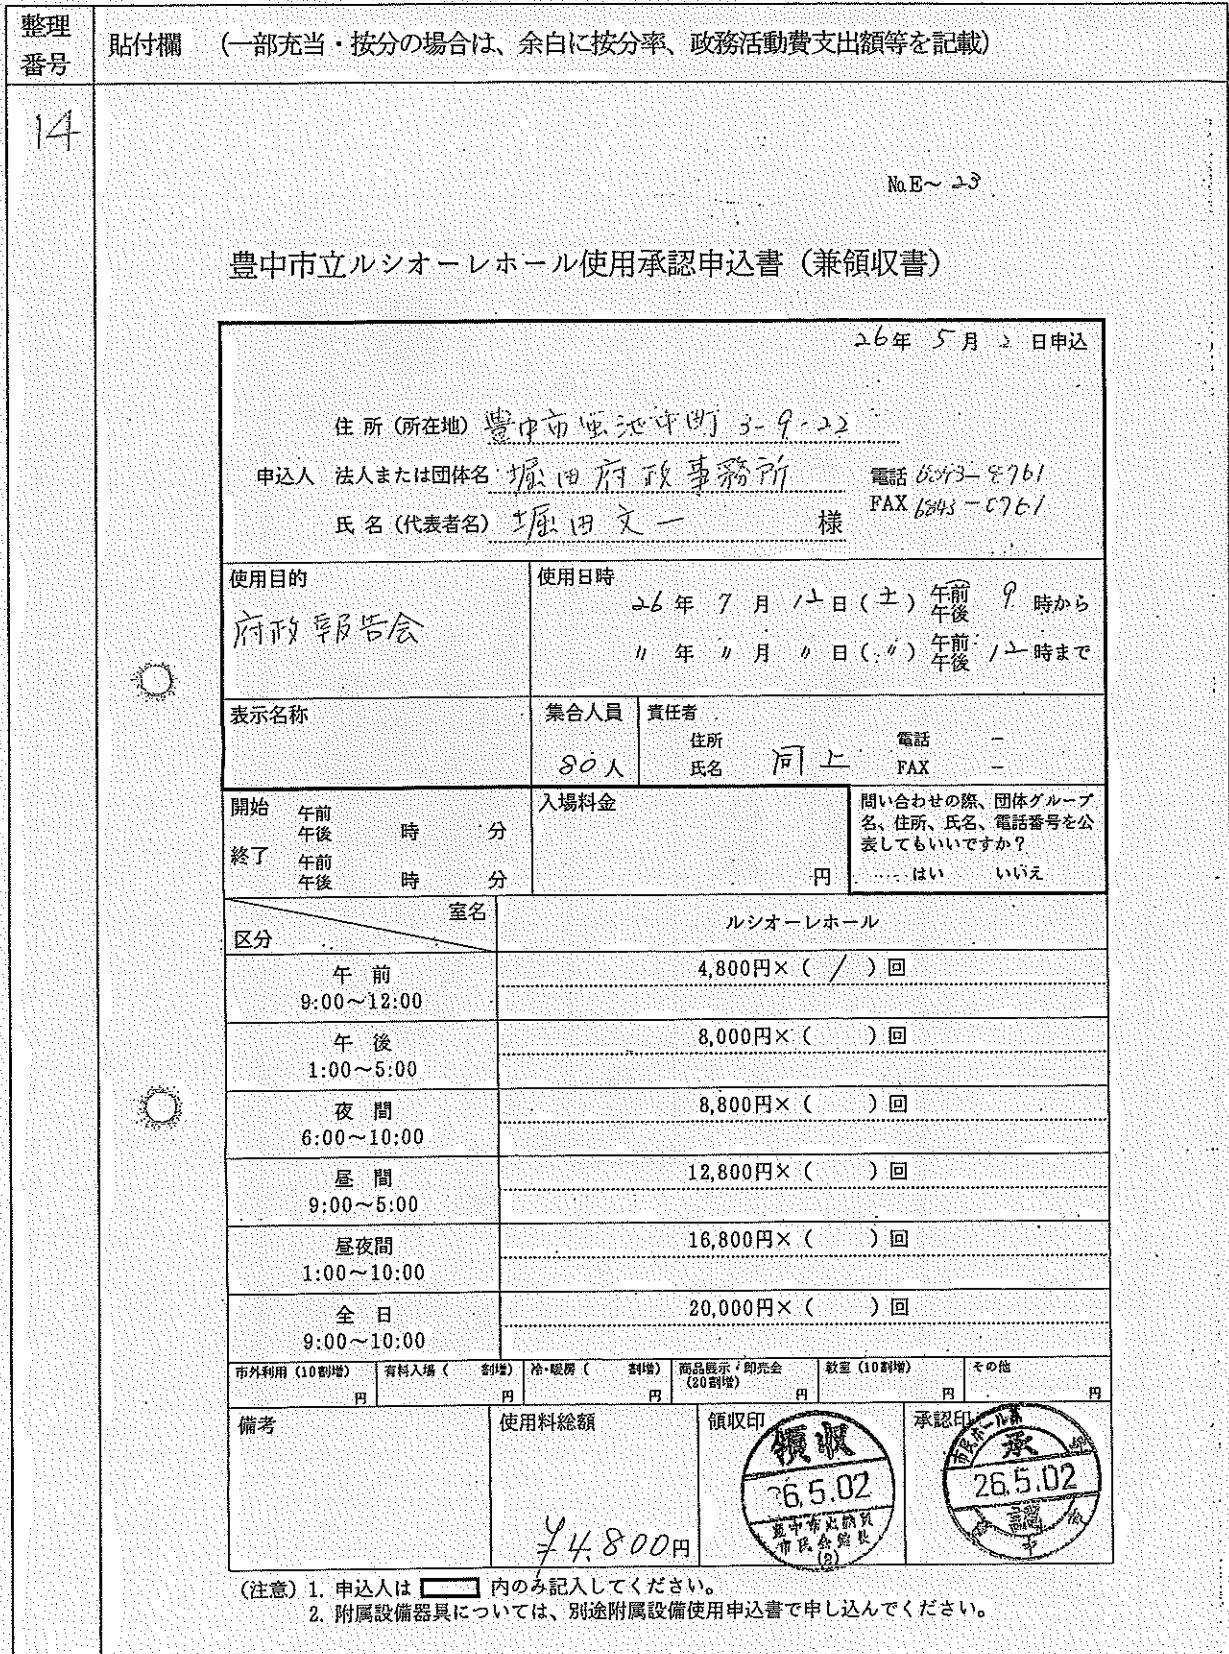 整理
番号
貼付欄 (一部充当・按分の場合は、余白に按分率、政務活動費支出額等を記載)
14
№E~23
豊中市立ルシオーレホール使用承認申込書(兼領収書)
26年 5月 2 日申込
住 所(所在地) 豊中市蛍池中町 3-9-22
申込人 法人または団体名 堀田府政事務所 電話
氏 名(代表者名) 堀田文一 様 FAX
使用目的
府政報告会
使用日時
26年 7月 12日(土)午前 午後 9 時から
〃 年 〃 月 〃 日(〃)午前 午後 12 時まで
表示名称
集合人員
80人
責任者
住所 電話 -
氏名 同上 FAX -
開始 午前 午後 時 分
終了 午前 午後 時 分
入場料金
円
問い合わせの際、団体グループ
名、住所、氏名、電話番号を公
表してもいいですか?
はい いいえ
室名
区分
ルシオーレホール
午 前
9:00~12:00
4,800円×( / )回
午 後
1:00~5:00
8,000円×( )回
夜 間
6:00~10:00
8,800円×( )回
昼 間
9:00~5:00
12,800円×( )回
昼夜間
1:00~10:00
16,800円×( )回
全 日
9:00~10:00
20,000円×( )回
市外利用(10割増) 円
有料入場( 割増) 円
冷・暖房( 割増) 円
商品展示・即売会
(20割増) 円
教室(10割増) 円
その他 円
備考
使用料総額
¥4.800円
領収印
領収
26.5.02
承認印
市民ホール
承
26.5.02
認
(注意)1. 申込人は 内のみ記入してください。
2. 附属設備器具については、別途附属設備使用申込書で申し込んでください。